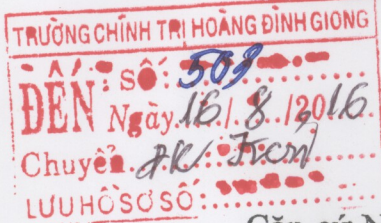 TRƯỜNG CHÍNH TRỊ HOÀNG ĐÌNH GIONG
ĐẾN: Số: 509
Ngày 16/ 8 /2016
Chuyển
LƯU HỒ SƠ SỐ: